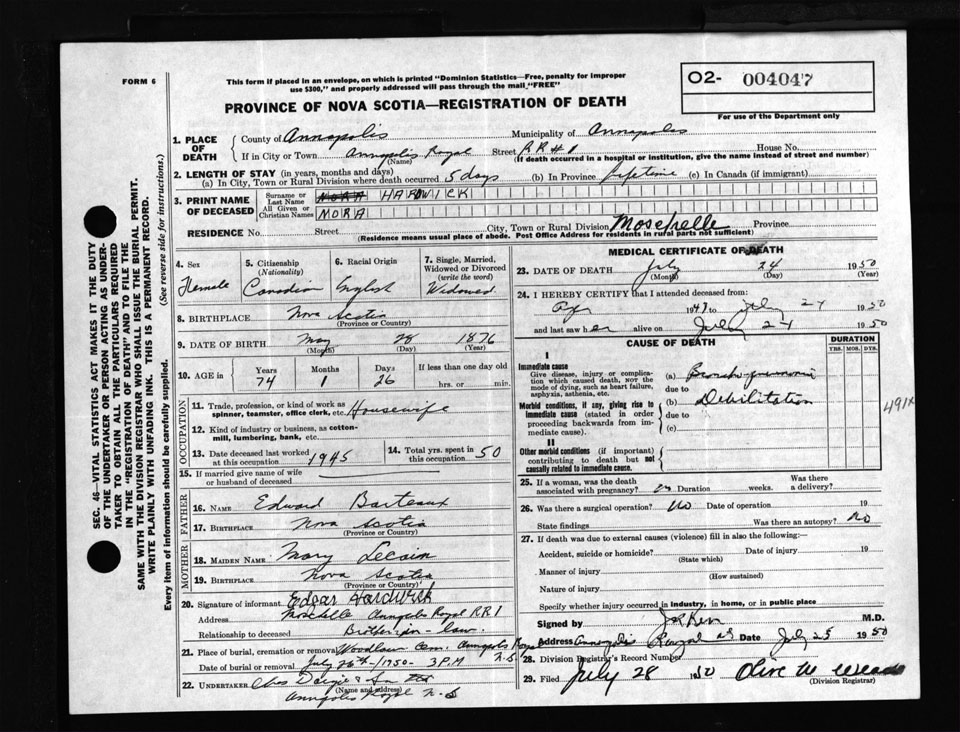 FORM 6
This form if placed in an envelope, on which is printed "Dominion Statistics—Free, penalty for improper
use $300," and properly addressed will pass through the mail "FREE"
O2- 004047
For use of the Department only
PROVINCE OF NOVA SCOTIA—REGISTRATION OF DEATH
SEC. 46—VITAL STATISTICS ACT MAKES IT THE DUTY
OF THE UNDERTAKER OR PERSON ACTING AS UNDER-
TAKER TO OBTAIN ALL THE PARTICULARS REQUIRED
IN THE "REGISTRATION OF DEATH" AND TO FILE THE
SAME WITH THE DIVISION REGISTRAR WHO SHALL ISSUE THE BURIAL PERMIT.
WRITE PLAINLY WITH UNFADING INK. THIS IS A PERMANENT RECORD.
Every item of information should be carefully supplied. (See reverse side for instructions.)
1. PLACE OF DEATH County of Annapolis Municipality of Annapolis
If in City or Town Annapolis Royal Street RR#1 House No.
(Name) (If death occurred in a hospital or institution, give the name instead of street and number)
2. LENGTH OF STAY (in years, months and days)
(a) In City, Town or Rural Division where death occurred 5 days (b) In Province Lifetime (c) In Canada (if immigrant)
3. PRINT NAME OF DECEASED Surname or Last Name NORA HARDWICK
All Given or Christian Names NORA
RESIDENCE No. Street City, Town or Rural Division Moschelle Province
(Residence means usual place of abode. Post Office Address for residents in rural parts not sufficient)
4. Sex Female
5. Citizenship (Nationality) Canadian
6. Racial Origin English
7. Single, Married, Widowed or Divorced (write the word) Widowed
8. BIRTHPLACE Nova Scotia
(Province or Country)
9. DATE OF BIRTH May 28 1876
(Month) (Day) (Year)
10. AGE in Years 74 Months 1 Days 26 If less than one day old hrs. or min.
OCCUPATION
11. Trade, profession, or kind of work as spinner, teamster, office clerk, etc. Housewife
12. Kind of industry or business, as cotton-mill, lumbering, bank, etc.
13. Date deceased last worked at this occupation 1945
14. Total yrs. spent in this occupation 50
15. If married give name of wife or husband of deceased
FATHER
16. NAME Edward Barteaux
17. BIRTHPLACE Nova Scotia
(Province or Country)
MOTHER
18. MAIDEN NAME Mary Lecain
19. BIRTHPLACE Nova Scotia
(Province or Country)
20. Signature of informant Edgar Hardwick
Address Moschelle Annapolis Royal RR 1
Relationship to deceased Brother-in-law.
21. Place of burial, cremation or removal Woodlawn Cem. Annapolis Royal N.S
Date of burial or removal July 26th-/1950- 3 P.M
22. UNDERTAKER Chas Dargie & Son
(Name and address)
Annapolis Royal N.S
MEDICAL CERTIFICATE OF DEATH
23. DATE OF DEATH July 24 1950
(Month) (Day) (Year)
24. I HEREBY CERTIFY that I attended deceased from
1947 to July 24 1950
and last saw her alive on July 24 1950
CAUSE OF DEATH
DURATION
YRS. MOS. DYS.
I
Immediate cause
Give disease, injury or complication which caused death, NOT the mode of dying, such as heart failure, asphyxia, asthenia, etc.
(a) Broncho-pneumonia
due to
Morbid conditions, if any, giving rise to immediate cause (stated in order proceeding backwards from immediate cause).
(b) Debilitation
due to
(c)
491X
II
Other morbid conditions (if important) contributing to death but not causally related to immediate cause.
25. If a woman, was the death associated with pregnancy? no Duration weeks. Was there a delivery?
26. Was there a surgical operation? No Date of operation 19
State findings Was there an autopsy? No
27. If death was due to external causes (violence) fill in also the following:—
Accident, suicide or homicide? Date of injury 19
(State which)
Manner of injury
(How sustained)
Nature of injury
Specify whether injury occurred in industry, in home, or in public place
Signed by M.D.
Address Annapolis Royal NS Date July 25 1950
28. Division Registrar's Record Number
29. Filed July 28 1950 Olive M
(Division Registrar)